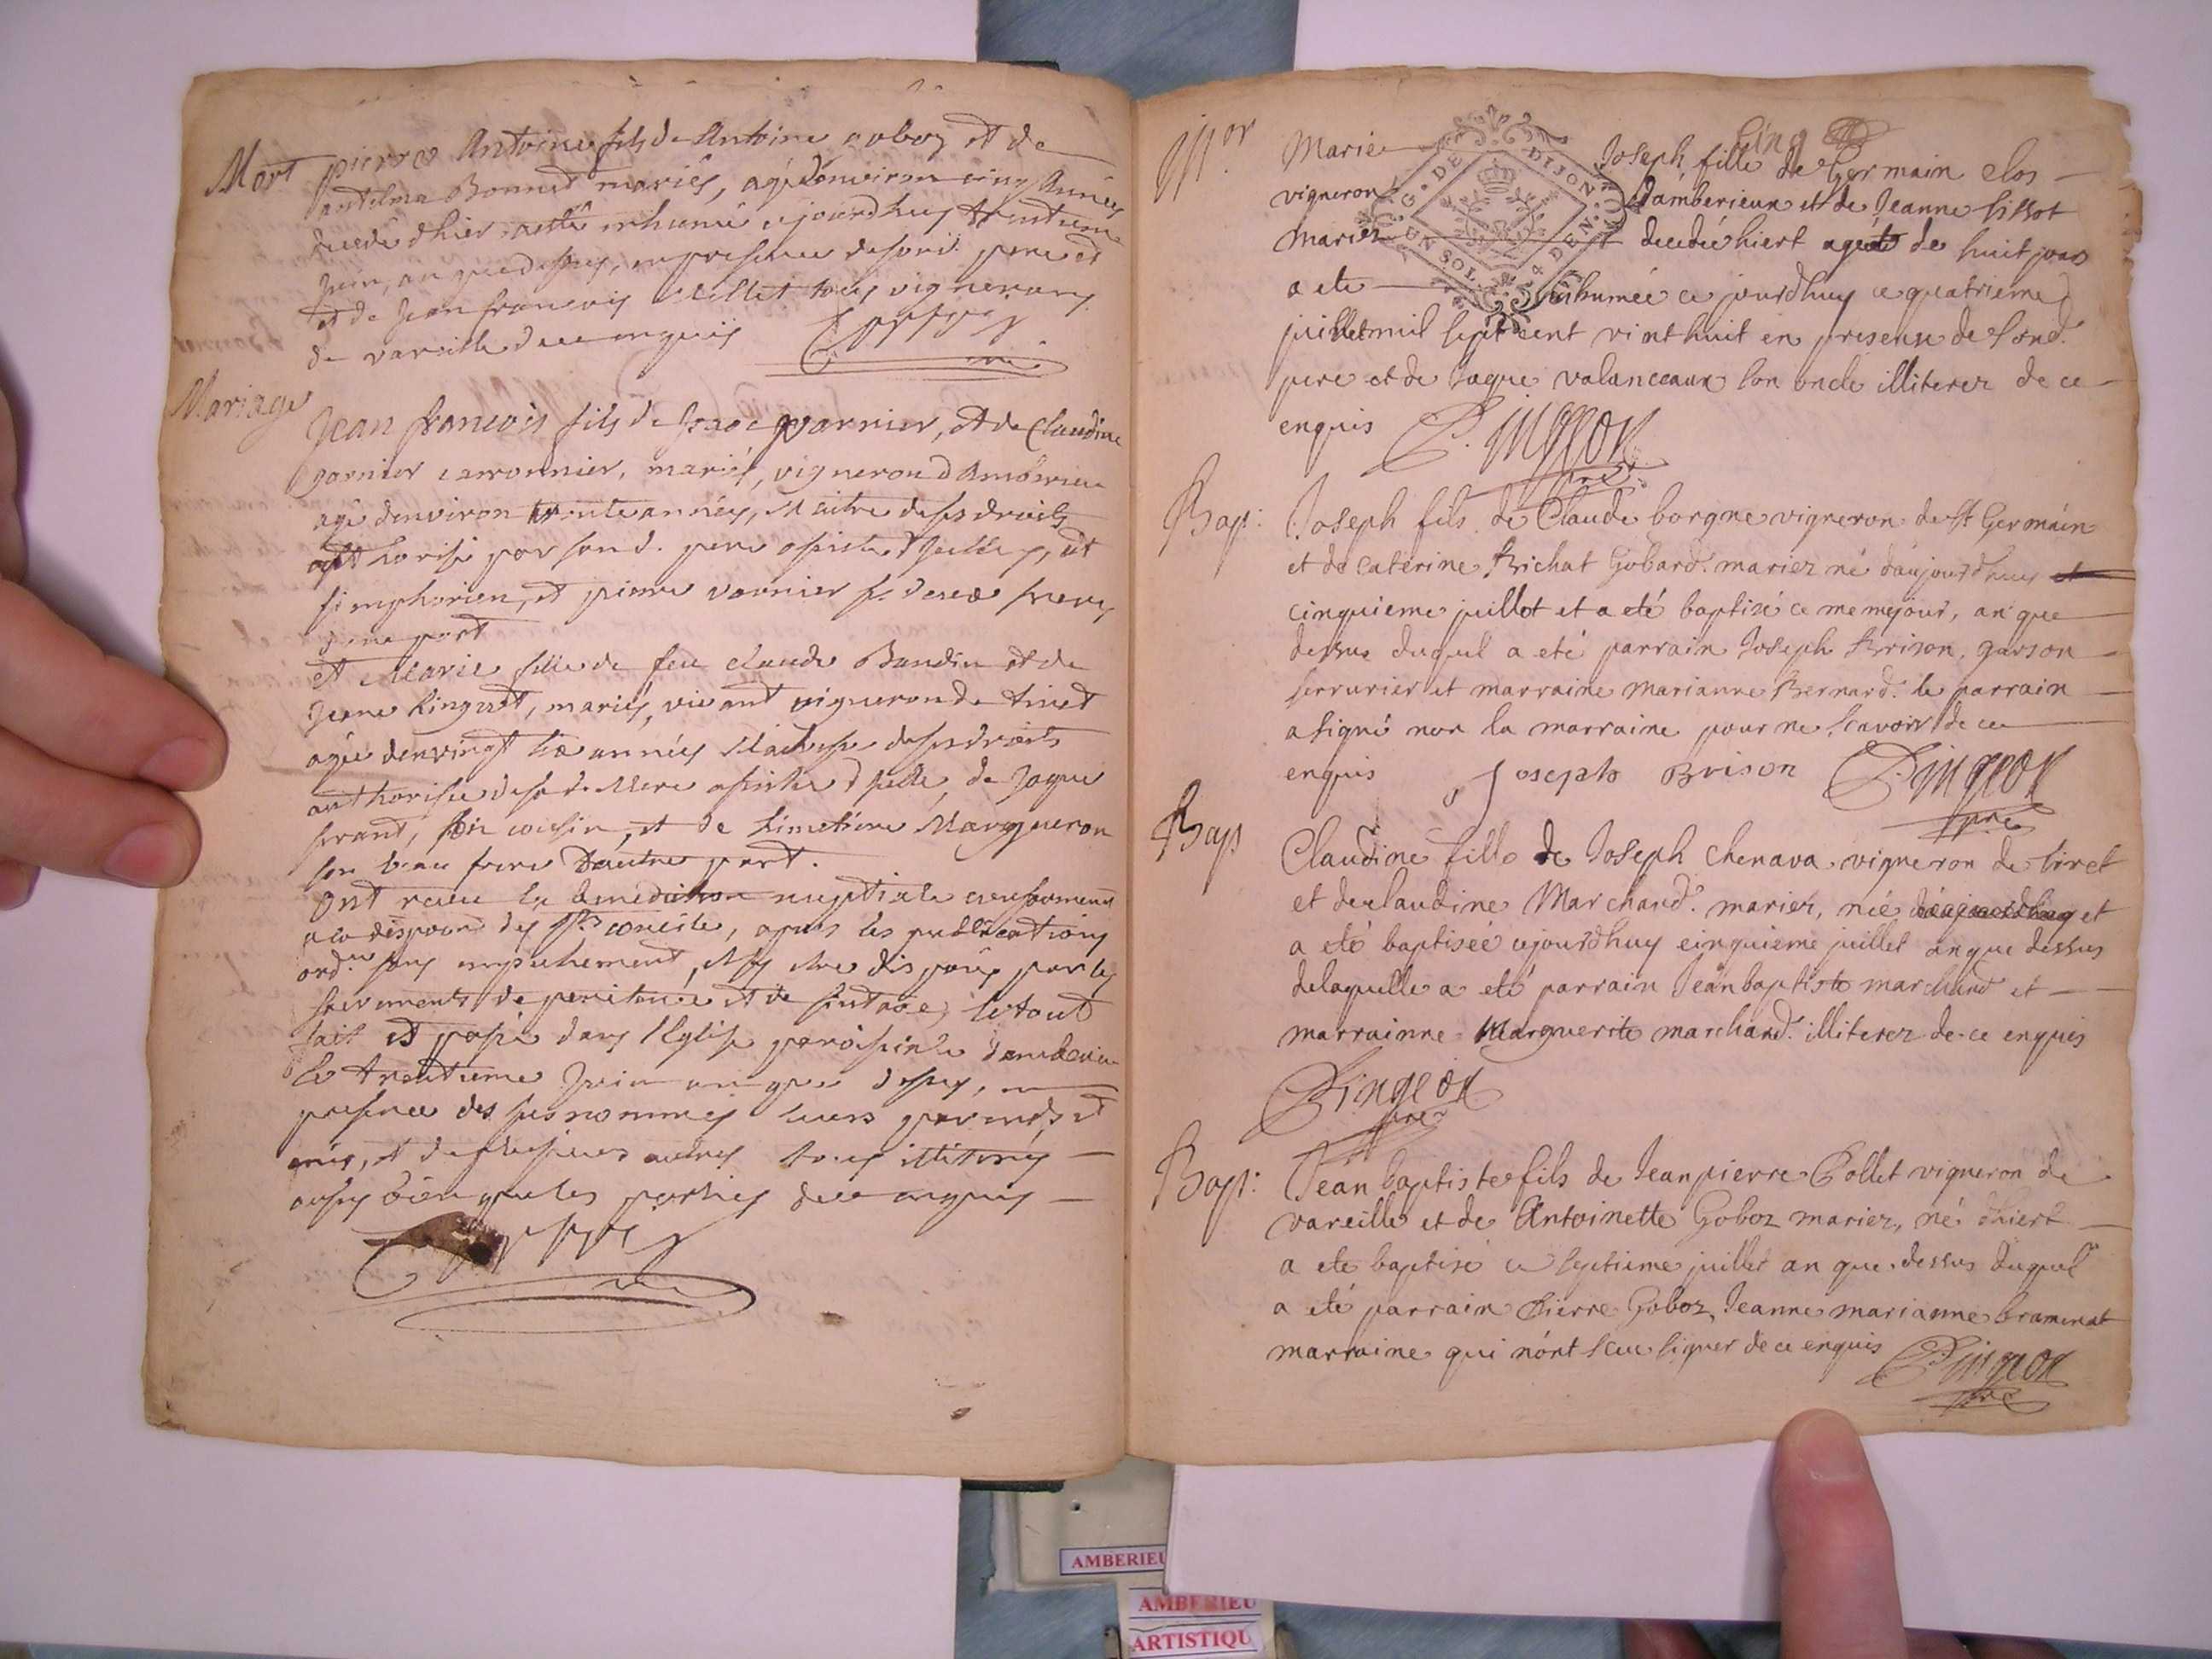 Mort
pierre Antoine fils de Antoine goboz et de
antelma Bonnet mariés, agé d'environ cinq Années
decedé dhier a esté inhumé cejourdhuy trentieme
Juin, an que dessus, en presence de sond. pere et
et de Jean francois Millet tous vignerons
de vareille de ce enquis
Mariage
Jean francois fils de varnier, et de Claudine
garnier carronnier, mariés, vigneron d'Ambérieu
agé denviron trente années, Maitre de ses droits
authorisé par sond. pere assisté d'
simphorien, et pierre varnier ses deux freres,
d'une part
et Marie fille de feu claude Baudin et de
Jeane Linguet, mariés, vivant vigneron de tiret
agée de vingt six années Maitresse de ses droits
authorisée de sad. Mere assistée d'Icelle, de Jaque
ferrant, son cousin, et de Margueron
son beau frere D'autre part.
Ont receu la benediction nuptiale conformement
a la disposon des Sts concile, apres les publications
ord.res sans empechement, et sy etre disposés par les
sacrements de penitence et de le tout
fait et passé dans l'Eglise paroissiale d'amberieu
le trentieme Juin an que dessus, en
presence des susnommés leurs parents et
amis, et de plusieurs autres tous illiterés
aussy bien que les parties de ce enquis
cinq
Mor
Marie Joseph fille de Germain clos
vigneron d'amberieux et de Jeanne tissot
mariez decedée hiert agéé de huit jours
a eté inhumée ce jourdhuy ce quatrieme
juillet mil sept cent vint huit en presense de sond.
pere et de Jaque valanceaux son oncle illiterez de ce
enquis P. ingeon
pre
G. DE DIJON
UN SOL 4 DEN.
Bap:
Joseph fils de Claude borgne vigneron de St Germain
et de Caterine Brichat Gobard. mariez né d'aujourdhuy et
cinquieme juillet et a eté baptisé ce meme jour, an que
dessus duquel a eté parrain Joseph Brison, garson
serrurier et marraine marianne Bernard. le parrain
a signé non la marraine pour ne scavoir de ce
enquis Joseph Brison Pingeon
pre
Bap
Claudine fille de Joseph Chenava vigneron de tiret
et de claudine Marchand. mariez, née daujourdhuy et
a eté baptisée cejourdhuy cinquieme juillet an que dessus
delaquelle a eté parrain Jean baptiste marchand et
marrainne Marguerite marchand. illiterez de ce enquis
Pingeon
pre
Bap:
Jean baptiste fils de Jean pierre Collet vigneron de
vareille et de Antoinette Goboz mariez, né dhiert
a eté baptisé ce septieme juillet an que dessus duquel
a eté parrain Pierre Goboz, Jeanne marianne bramerat
marraine qui n'ont sceu signer de ce enquis Pingeon
pre
AMBERIEU
AMBERIEU
ARTISTIQU